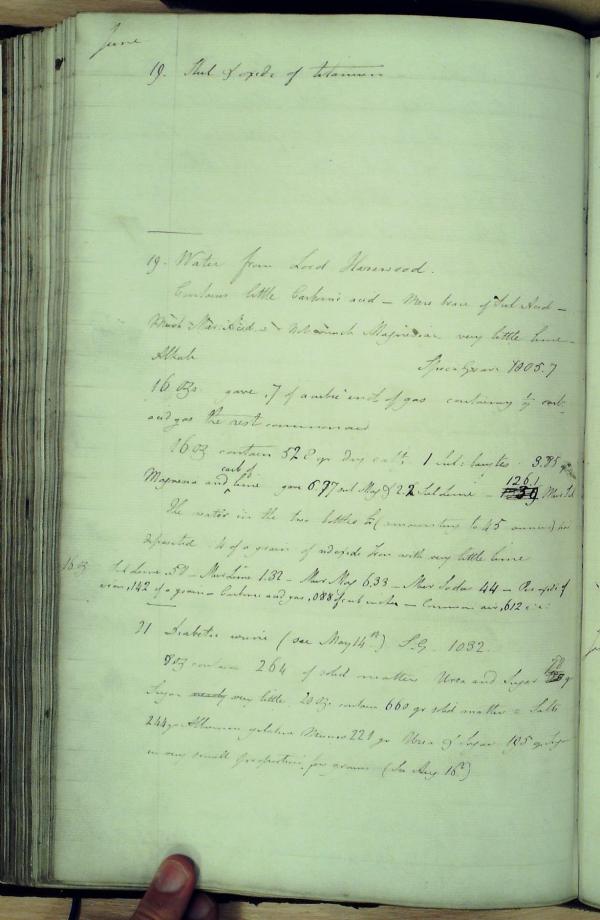 June
19. Steel & oxide of titanium
19. Water from Lord Harewood.
Contains little Carbonic acid — Mere trace of Sul Acid —
Much Mur Acid — Not much Magnesia very little lime —
Alkali Spec Grav 1005.7
16 ozs gave .7 of a cubic inch of gas containing carb
acid gas the rest common air
16 oz contain 52.8 gr dry salts 1 Sul: barytes 3.85 gr
carb of 1261
Magnesia and lime gave 6.77 sul Mag & 2.2 Sul Lime — Mur Sil
The water in the two bottles (amounting to 45 ounces) had
deposited .4 of a grain of red oxide iron with very little lime
16 oz Sul Lime .50 — Mur Lime 1.32 — Mur Mag 6.33 — Mur Soda 44 — Per oxide of
iron .142 of a grain — Carbonic acid gas .088 of cub inches — Common air .612
21 Diabetic urine (see May 14th) S.G. 1032.
oz contain 264 of solid matter Urea and Sugar gr
Sugar very little. 20 oz. contain 660 gr solid matter = Salts
244 gr Albumen gelatine Mucus 221 gr Urea & Sugar 195 gr Sugar
in very small proportion. few grains (See Aug 16th)